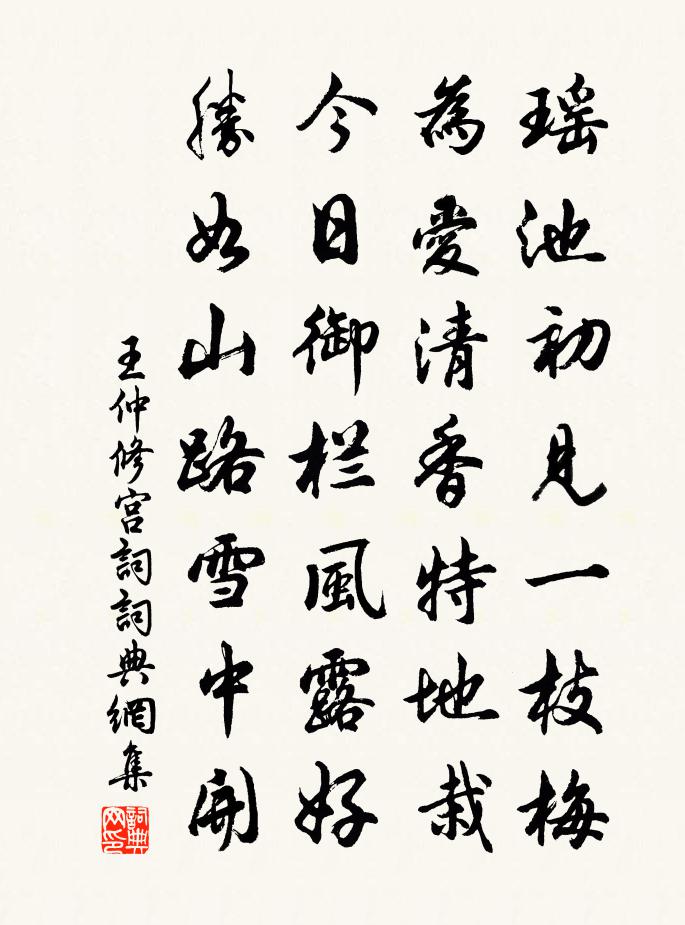 瑶池初见一枝梅
為愛清香特地栽
今日御栏風露好
勝如山路雪中開
王仲修宫詞詞典網集
詞典网印